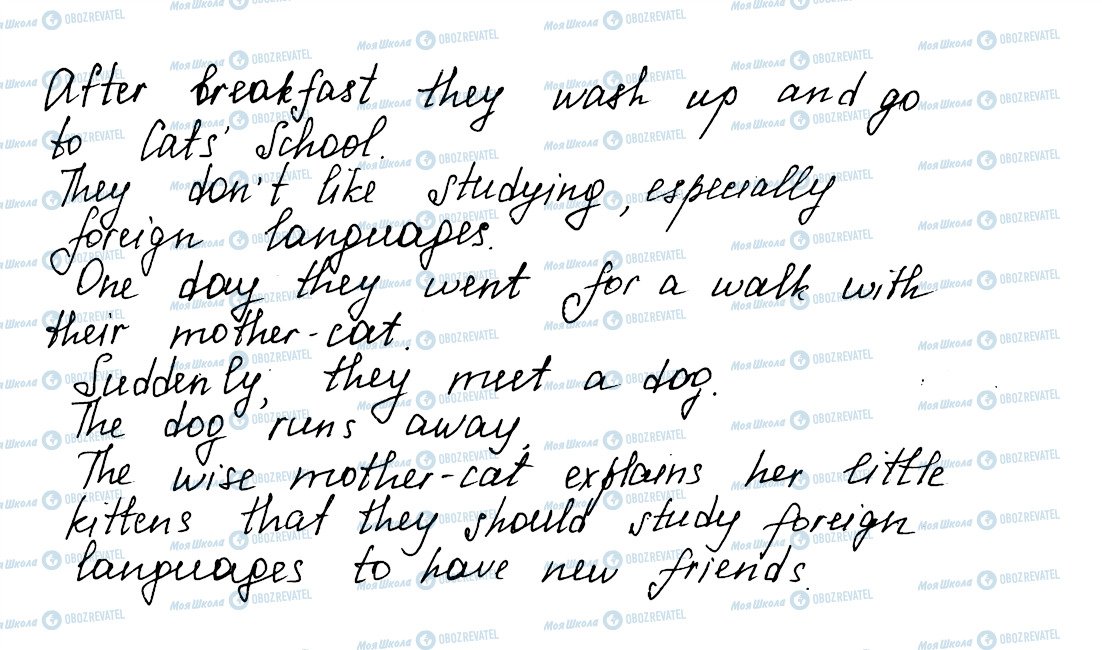 After breakfast they wash up and go
to Cats' School.
They don't like studying, especially
foreign languages.
One day they went for a walk with
their mother-cat.
Suddenly, they meet a dog.
The dog runs away.
The wise mother-cat explains her little
kittens that they should study foreign
languages to have new friends.
Моя Школа OBOZREVATEL